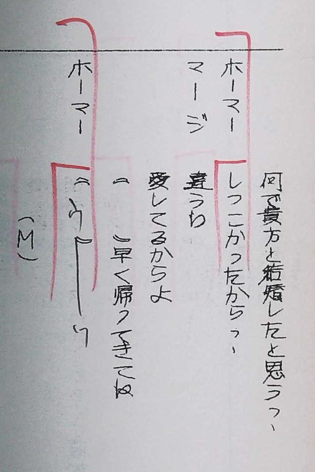 何で貴方と結婚したと思うっ、
ホーマー しつこかったからっ、
マージ 違うわ
愛してるからよ
早く帰ってきてね
ホーマー
(M)